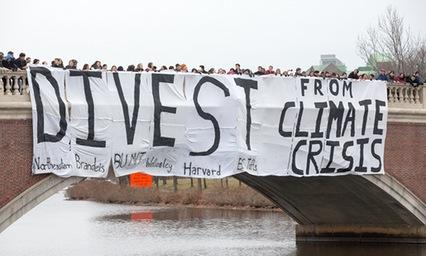 DIVEST
FROM
CLIMATE
CRISIS
Northeastern Brandeis BU MIT Wellesley Harvard BC Tufts